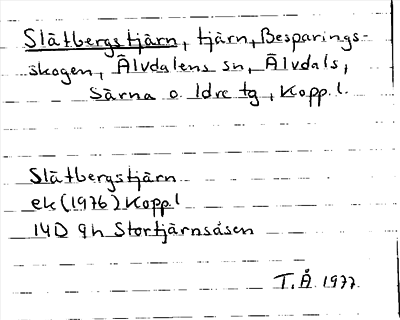 Slätbergstjärn, tjärn, Besparings-
skogen, Älvdalens sn, Älvdals,
Särna o. Idre tg, Kopp. l.
Slätbergstjärn
ek (1976) Kopp l
14D 9h Stortjärnsåsen
T. Å. 1977.